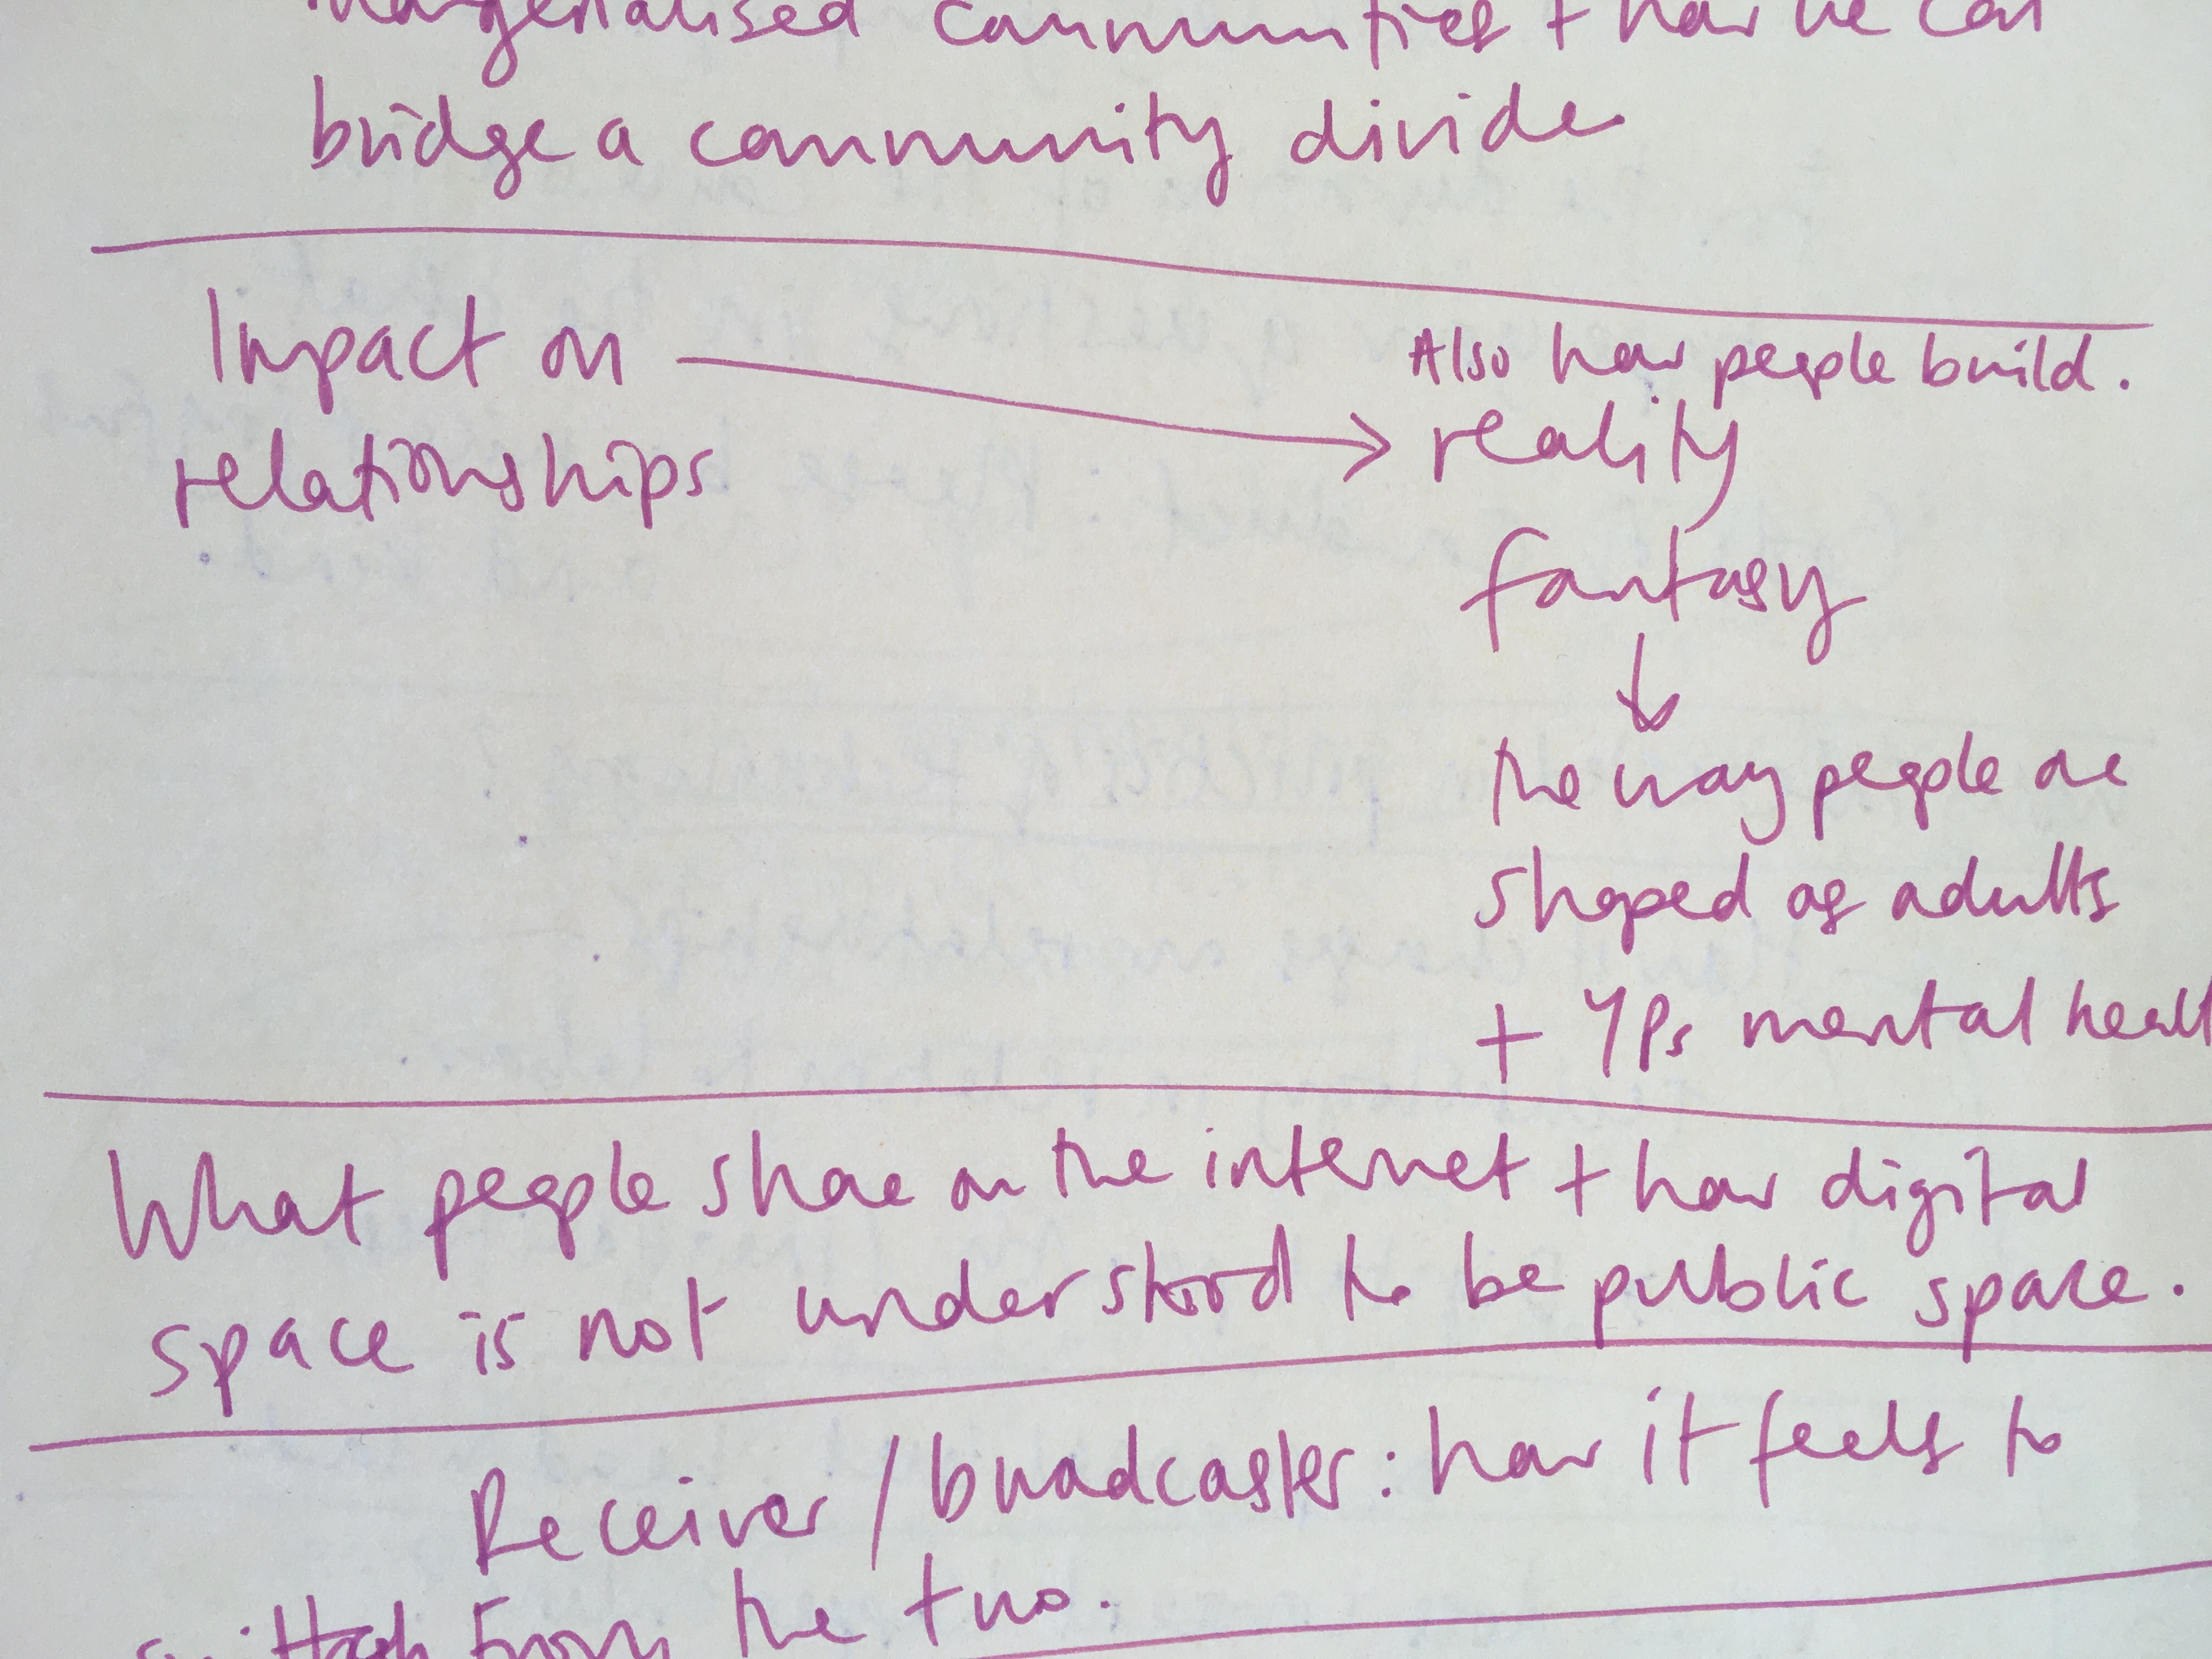 margenalised communities + how we can
bridge a community divide
Impact on
relationships
Also how people build.
reality
fantasy
the way people are
shaped as adults
+ YPs mental healt
What people share on the internet + how digital
space is not understood to be public space.
Receiver / broadcaster: how it feels to
from the two.